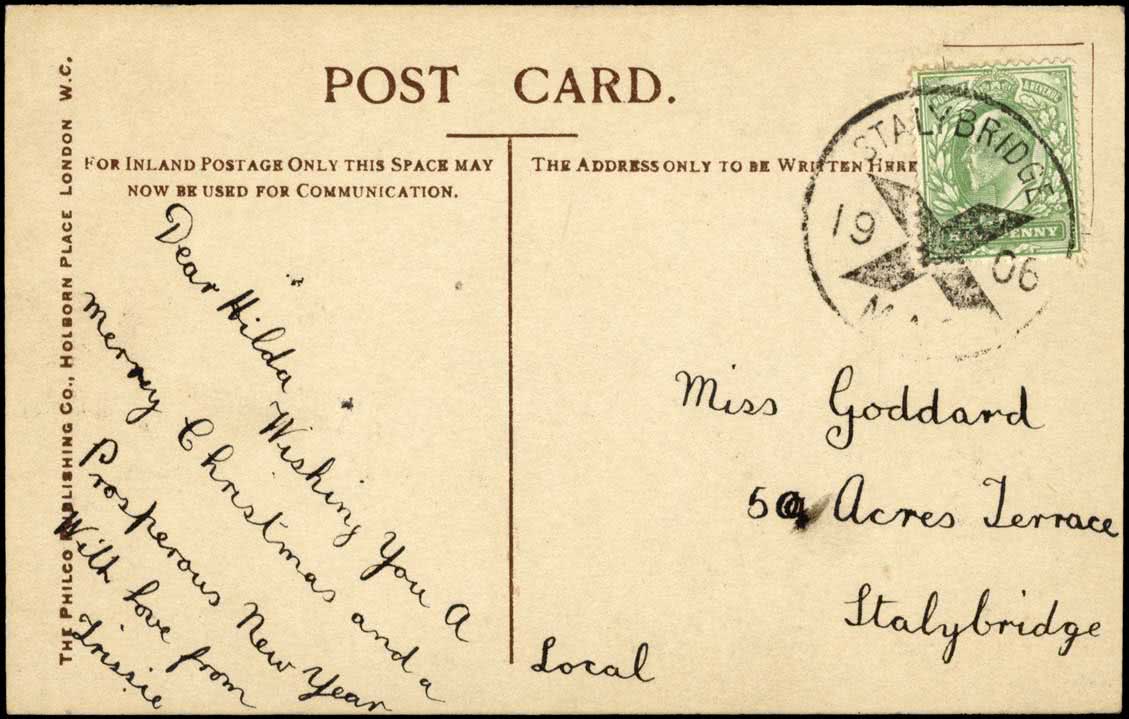 POST CARD.
THE PHILCO PUBLISHING CO., HOLBORN PLACE LONDON W.C.
FOR INLAND POSTAGE ONLY THIS SPACE MAY
NOW BE USED FOR COMMUNICATION.
THE ADDRESS ONLY TO BE WRITTEN HERE
POSTAGE & REVENUE
HALFPENNY
STALYBRIDGE
19 06
Dear Hilda Wishing You A
merry Christmas and a
Prosperous New Year
With love from
Trissie
Miss Goddard
Acres Terrace
Stalybridge
Local